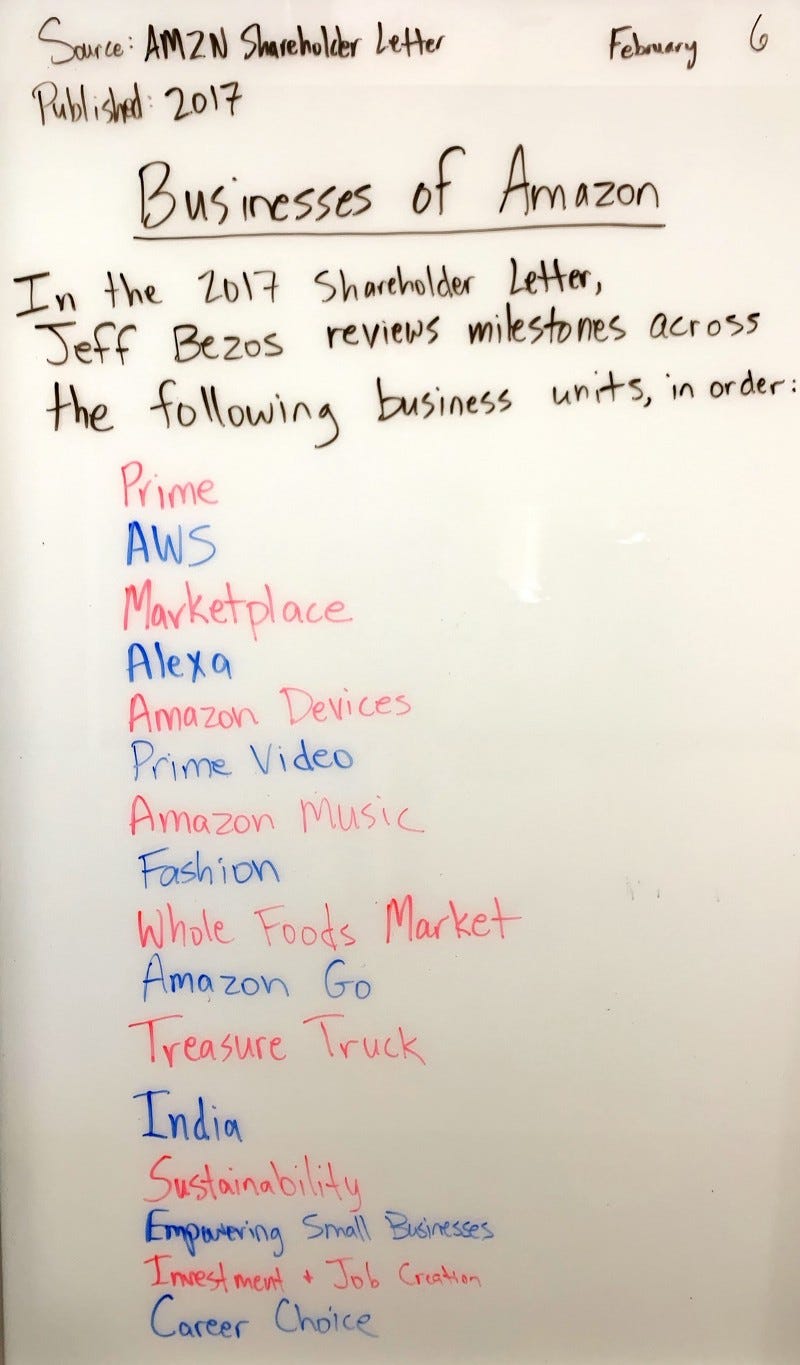 Source: AMZN Shareholder Letter February 6
Published: 2017
Businesses of Amazon
In the 2017 Shareholder Letter,
Jeff Bezos reviews milestones across
the following business units, in order:
Prime
AWS
Marketplace
Alexa
Amazon Devices
Prime Video
Amazon Music
Fashion
Whole Foods Market
Amazon Go
Treasure Truck
India
Sustainability
Empowering Small Businesses
Investment + Job Creation
Career Choice